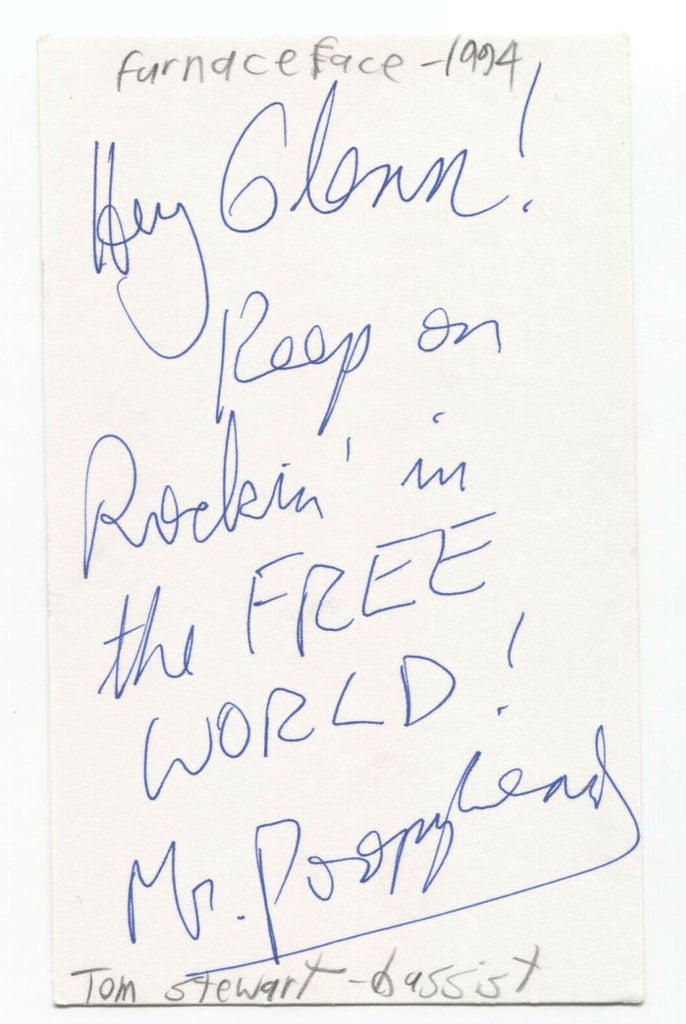 Furnaceface - 1994
Hey Glenn!
Keep on
Rockin' in
the FREE
WORLD!
Mr. Poopyhead
Tom stewart - bassist